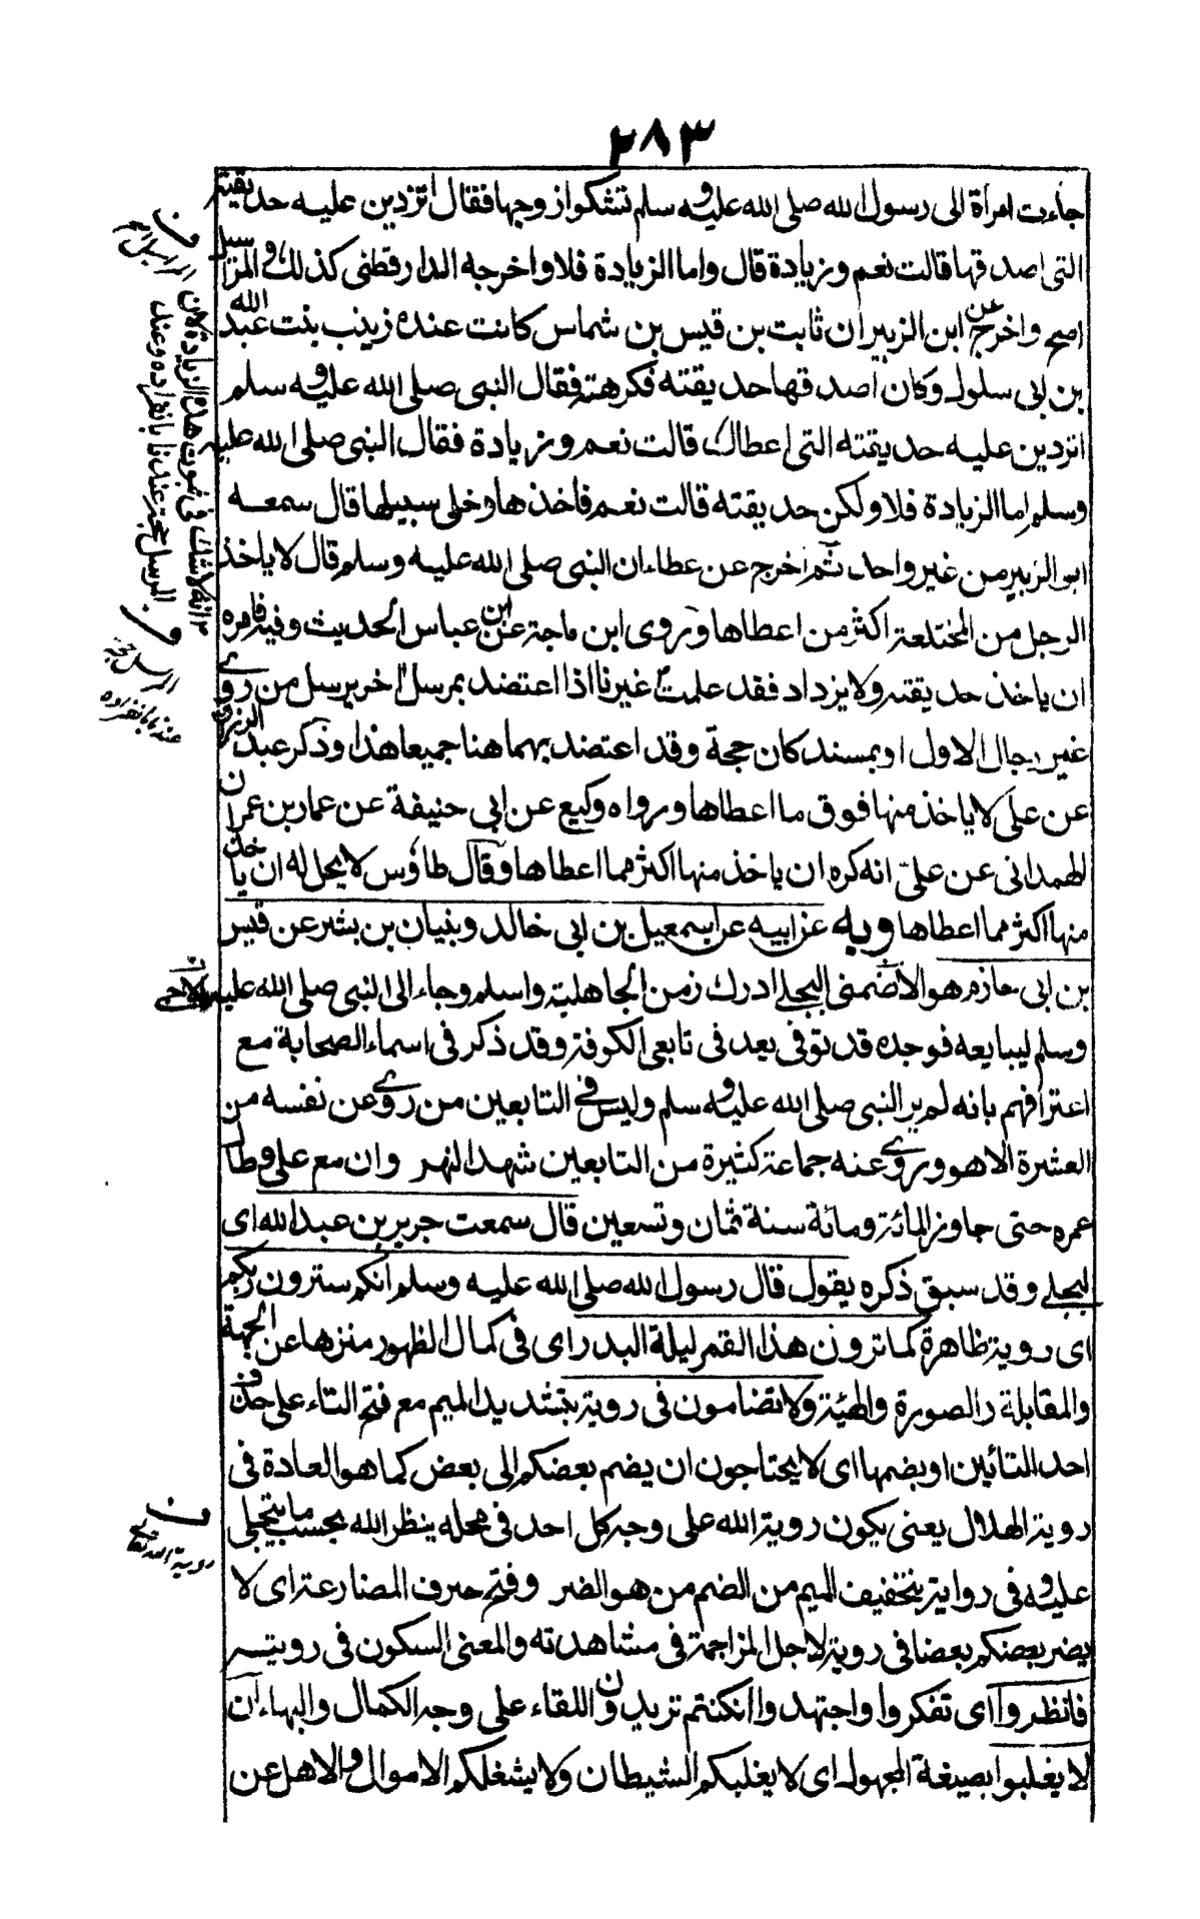 ٢٨٣
جاءت امرأة الى رسول الله صلى الله عليه و سلم تشكو زوجها فقال اتردين عليه حديقته
التى اصدقها قالت نعم وزيادة قال واما الزيادة فلا واخرجه الدارقطنى كذلك و المرسل
اصح واخرج عن ابن الزبير ان ثابت بن قيس بن شماس كانت عنده زينب بنت عبد الله
بن ابى سلول وكان اصدقها حديقته فكرهته فقال النبى صلى الله عليه و سلم
اتردين عليه حديقته التى اعطاك قالت نعم وزيادة فقال النبى صلى الله عليه
وسلم اما الزيادة فلا ولكن حديقته قالت نعم فاخذها وخلى سبيلها قال سمعه
ابو الزبير من غير واحد ثم اخرج عن عطاء ان النبى صلى الله عليه وسلم قال لا ياخذ
الرجل من المختلعة اكثر من اعطاها وروى ابن ماجة عن ابن عباس الحديث وفيه فامره
ان ياخذ حديقته ولا يزداد فقد علمت غير نا اذا اعتضد بمرسل اخر يرسل من روى
غير رجال الاول او بمسند كان حجة وقد اعتضد بهما هنا جميعا هذا وذكر عبد الرزاق
عن على لا ياخذ منها فوق ما اعطاها ورواه وكيع عن ابى حنيفة عن عمار بن عمران
الهمدانى عن على انه كره ان ياخذ منها اكثر مما اعطاها وقال طاؤس لا يحل له ان ياخذ
منها اكثر مما اعطاها وبه عن ابيه عن اسمعيل بن ابى خالد وبنيان بن بشر عن قيس
بن ابى حازم هو الاحمسى البجلى ادرك زمن الجاهلية واسلم وجاء الى النبى صلى الله عليه
وسلم ليبايعه فوجده قد توفى يعد فى تابعى الكوفة وقد ذكر فى اسماء الصحابة مع
اعترافهم بانه لم ير النبى صلى الله عليه و سلم وليس فى التابعين من روى عن نفسه من
العشرة الا هو وروى عنه جماعة كثيرة من التابعين شهد النهروان مع على وطال
عمره حتى جاوز المائة ومائة سنة ثمان وتسعين قال سمعت جرير بن عبد الله اى
البجلى وقد سبق ذكره يقول قال رسول الله صلى الله عليه وسلم انكم سترون ربكم
اى روية ظاهرة كما ترون هذا القمر ليلة البدر اى فى كمال الظهور منزها عن الجهة
والمقابلة والصورة والهيئة ولا تضامون فى روية بتشديد الميم مع فتح التاء على حذف
احد التائين او بضمها اى لا يحتاجون ان يضم بعضكم الى بعض كما هو العادة فى
روية الهلال يعنى يكون روية الله على وجه كل احد فى محله ينظر الله بحسب ما يتجلى
عليه و فى رواية بتخفيف الميم من الضم من هو الضر وفتح حرف المضارعة اى لا
يضر بعضكم بعضا فى روية لاجل المزاحمة فى مشاهدته والمعنى السكون فى رويته
فانظروا اى تفكروا واجتهدوا انكنتم تريدون اللقاء على وجه الكمال والبهاء ان
لا يغلبوا بصيغة المجهول اى لا يغلبكم الشيطان ولا يشغلكم الاموال و الاهل عن
انه لا شك فى ثبوت هذه الزيادة لان
المرسل حجة عندنا بانفراده وعند
المرسل حجة
عندنا بانفراده
روية الله تعالى